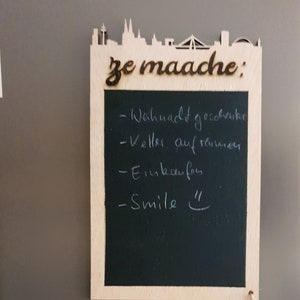 ze maache:
- Weihnachtsgeschenke
- Keller aufräumen
- Einkaufen
- Smile